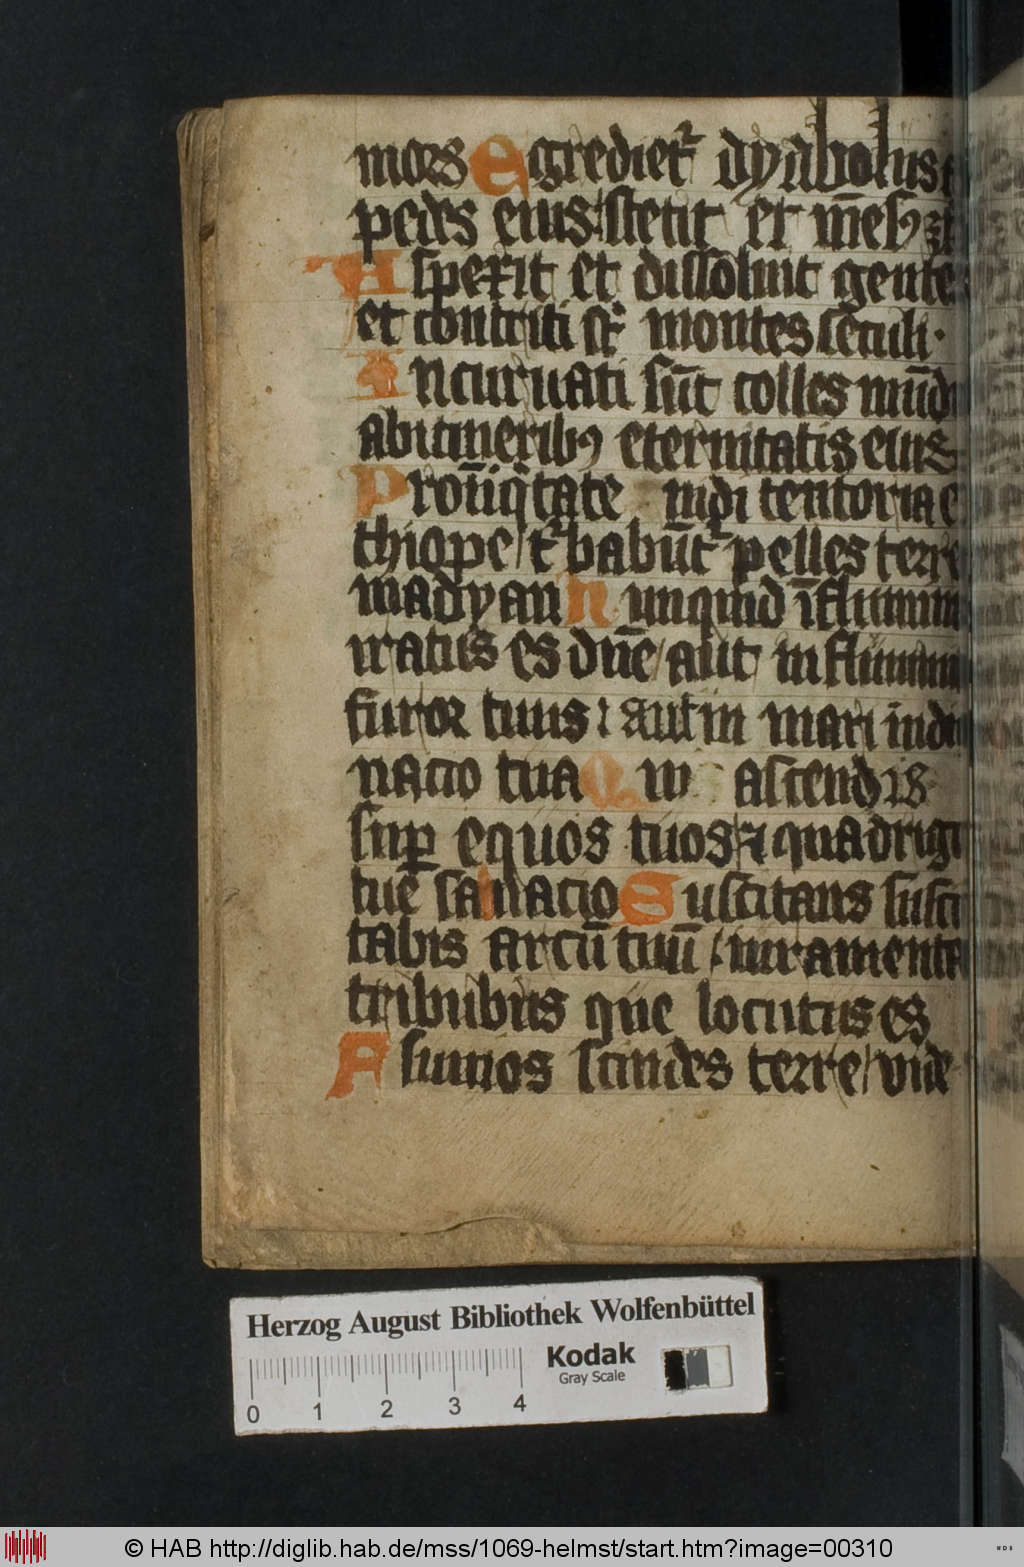 mors Egrediet᷑ dyabolus
pedes eius stetit et mēsꝰ ē t᷑
Aspexit et dissoluit gente
et contriti st᷑ montes seculi·
Incuruati sūt colles mūdi
ab itineribꝰ eternitatis eius
Pro iniqͥtate uidi tentoria e
thiope t᷑babūt᷑ pelles terre
madyan Nunquid ī flumin
iratus es dn̄e aut in flumin
furor tuus ⁊ aut in mari indig
nacio tua Qui ascendis
suꝑ equos tuos ⁊ quadrige
tue saluacio Suscitans susci
tabis arcū tuū iuramenta
tribubus que locutus es
Fluuios scindes terre vide
Herzog August Bibliothek Wolfenbüttel
Kodak
Gray Scale
0 1 2 3 4
© HAB http://diglib.hab.de/mss/1069-helmst/start.htm?image=00310